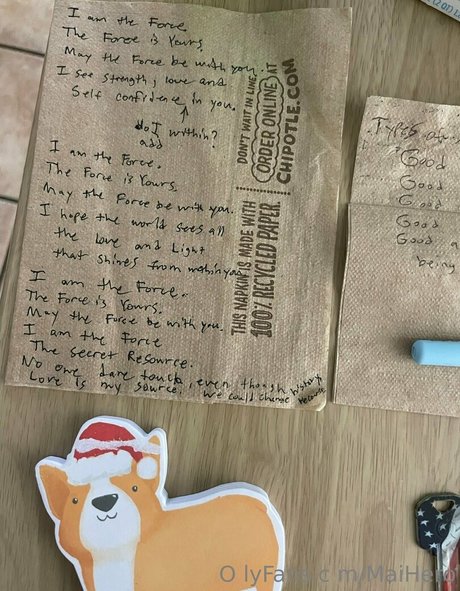 I am the Force
The Force is Yours
May the Force be with you.
I see strength, love and
Self confidence in you.
do I within?
add
I am the Force.
The Force is Yours
May the Force be with you.
I hope the world sees all
the Love and Light
that shines from within you
I am the Force.
The Force is Yours.
May the Force be with you.
I am the Force
The Secret Resource.
No one dare touch, even though
Love is my source. we could change
DON'T WAIT IN LINE.
ORDER ONLINE AT
CHIPOTLE.COM
THIS NAPKIN IS MADE WITH
100% RECYCLED PAPER.
Types
Good
Good
Good
Good
Good a
being
O lyFa s c m/MaiHero